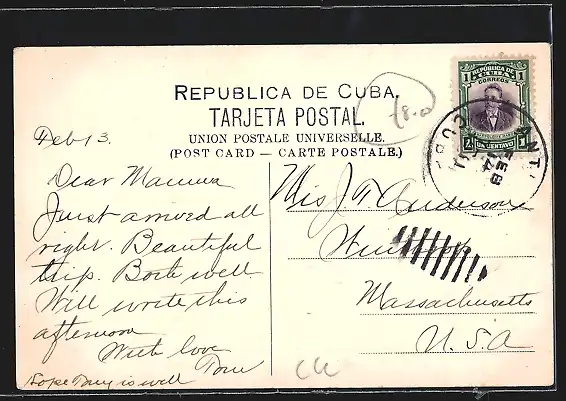 REPUBLICA DE CUBA.
TARJETA POSTAL.
UNION POSTALE UNIVERSELLE.
(POST CARD — CARTE POSTALE.)
1 REPUBLICA DE CUBA 1
CORREOS
UN CENTAVO 1
ANT
FEB
14
CUB
Feb 13.
Dear Mamma
Just arrived all
right. Beautiful
trip. Both well
Will write this
afternoon
With love
Tom
Hope is well
J. Anderson
Massachusetts
U.S.A